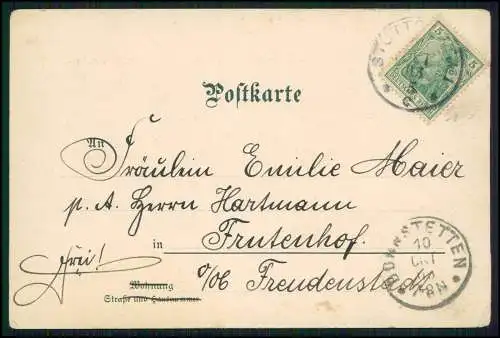 5 5
STUTT
Postkarte
An
Fräulein Emilie Maier
p. A. Herrn Hartmann
in Frutenhof.
frei!
o/A Freudenstadt
Wohnung
Straße und Hausnummer
DORNSTETTEN
10
OKT